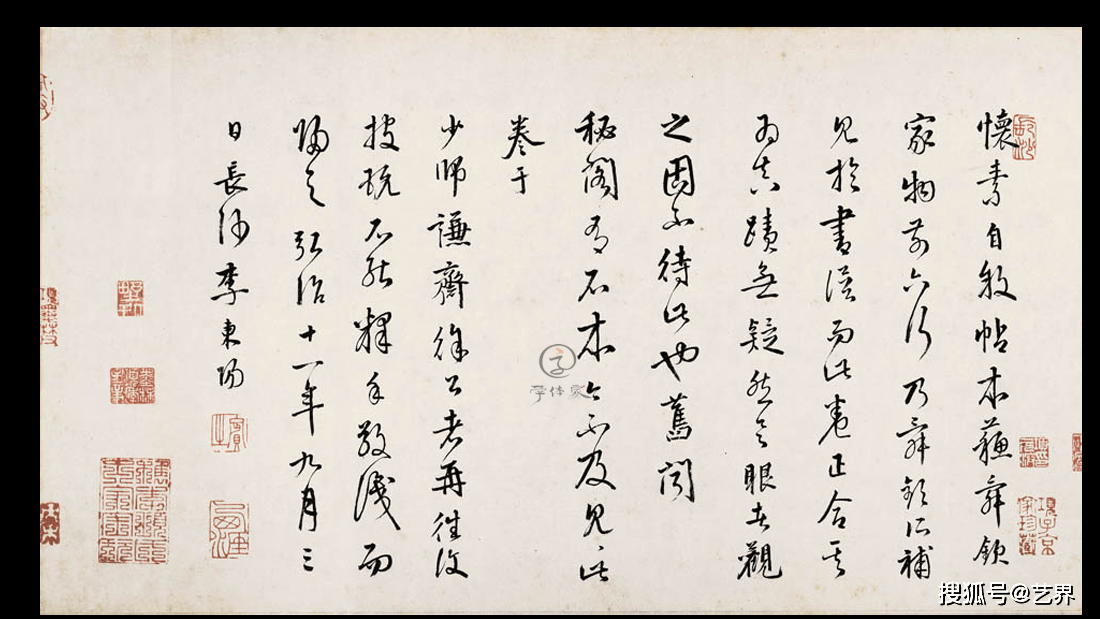 懷素自敘帖本蘇舜欽
家物前六行乃舜欽所補
見於書譜而此卷正合其
為真蹟無疑然具眼者觀
之固不待此也舊聞
秘閣有石本今不及見此
卷于
少師謙齋徐公者再往復
披玩不能釋手敬識而
歸之弘治十一年九月三
日長沙李東陽
項子京家珍藏
字体家
搜狐号@艺界